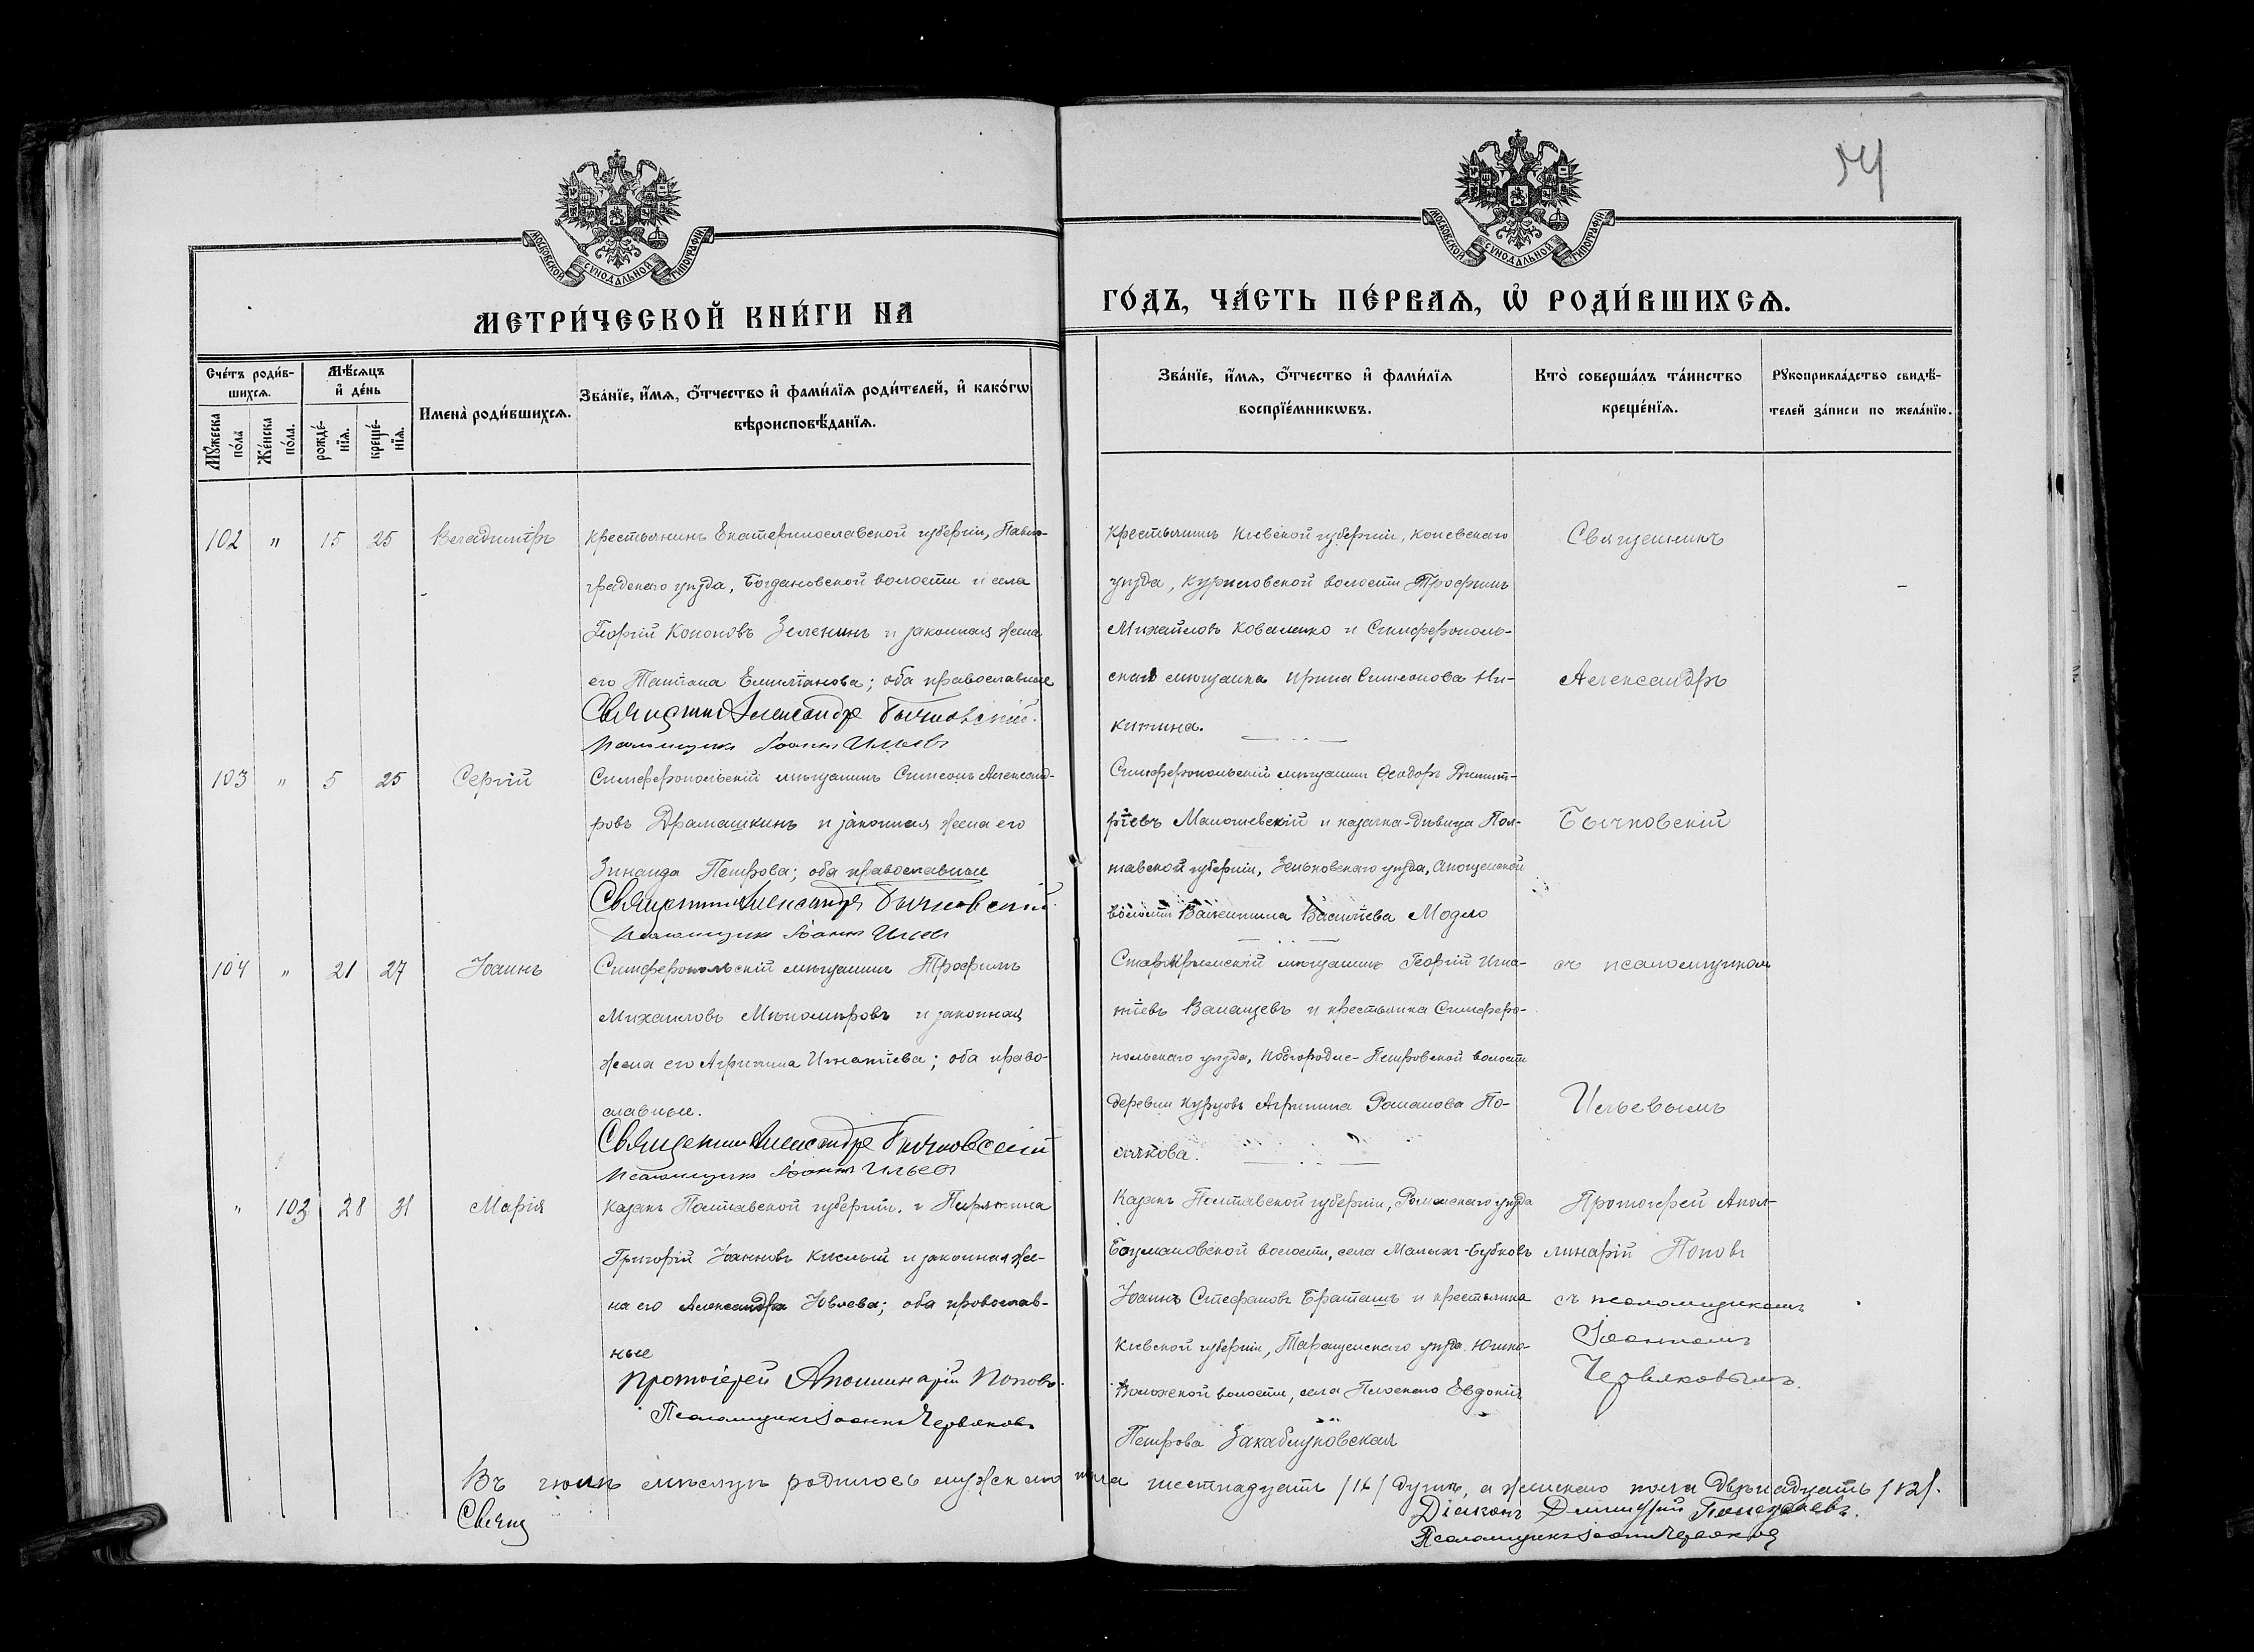 54
МОСКОВСКОЙ СУНОДАЛЬНОЙ ТИПОГРАФІИ
МОСКОВСКОЙ СУНОДАЛЬНОЙ ТИПОГРАФІИ
МЕТРИ́ЧЕСКОЙ КНИ́ГИ НА
ГО́ДЪ, ЧА́СТЬ ПЕ́РВАѦ, Ѡ҆ РОДИ́ВШИХСѦ.
Сче́тъ роди́в-
шихсѧ.
Мꙋ́жеска по́ла
Же́нска по́ла.
Мѣ́сѧцъ
и҆ де́нь
рожде́-
нїѧ.
креще́-
нїѧ.
Имена̀ роди́вшихсѧ.
Зва́нїе, и҆́мѧ, ѻ҆́тчество и҆ фами́лїѧ роди́телей, и҆ како́гѡ
вѣроисповѣ́данїѧ.
Зва́нїе, и҆́мѧ, ѻ҆́тчество и҆ фами́лїѧ
воспрїе́мникѡвъ.
Кто̀ соверша́лъ та́инство
креще́нїѧ.
Рꙋкоприкла́дство свидѣ́-
телей за́писи по жела́нїю.
102 " 15 25 Владиміръ
Крестьянинъ Екатеринославской губерніи, Павло-
градскаго уѣзда, Богдановской волости и села
Георгій Кононовъ Зеленинъ и законная жена
его Татіана Емиліанова; оба православные
Священникъ Александръ Бычковскій.
Псаломщикъ Іоаннъ Ильевъ
Крестьянинъ Кіевской губерніи, Каневскаго
уѣзда, Куриловской волости Трофимъ
Михайловъ Коваленко и Симферополь-
ская мѣщанка Ирина Симеонова Ни-
китина.
Священникъ
Александръ
103 " 5 25 Сергій
Симферопольскій мѣщанинъ Симеонъ Александ-
ровъ Драмашкинъ и законная жена его
Зинаида Петрова; оба православные
Священникъ Александръ Бычковскій
Псаломщикъ Іоаннъ Ильевъ
Симферопольскій мѣщанинъ Ѳеодоръ Димит-
ріевъ Малошевскій и казачка-дѣвица Пол-
тавской губерніи, Зеньковскаго уѣзда,
волости Валентина Васильева
Бычковскій
104 " 21 27 Іоаннъ
Симферопольскій мѣщанинъ Трофимъ
Михаиловъ и законная
жена его Агрипина Игнатіева; оба право-
славные.
Священникъ Александръ Бычковскій
Псаломщикъ Іоаннъ Ильевъ
Старокрымскій мѣщанинъ Георгій Игна-
тіевъ и крестьянка Симферо-
польскаго уѣзда, Подгородне-Петровской волости
деревни Курцовъ Агрипина Романова По-
лякова.
съ псаломщикомъ
Ильевымъ
" 103 28 31 Марія
Казакъ Полтавской губерніи, г. Пирятина
Григорій Іоанновъ Кислый и законная же-
на его Александра Іовлева; оба православ-
ные
Протоіерей Аполлинарій Поповъ.
Псаломщикъ Іоаннъ Червяковъ
Казакъ Полтавской губерніи, Роменскаго уѣзда
волости, села Малыхъ-Бубновъ
Іоаннъ Стефановъ Браташъ и крестьянка
Кіевской губерніи, Таращанскаго уѣзда
волости, села Плоскаго Евдокія
Петрова Закаблуковская
Протоіерей Апол-
линарій Поповъ
съ псаломщикомъ
Іоанномъ
Червяковымъ.
Въ іюлѣ мѣсяцѣ родилось мужскаго пола шестнадцать /16/ душъ, а женскаго пола двѣнадцать /12/.
Свящ
Діаконъ Димитрій
Псаломщикъ Іоаннъ Червяковъ